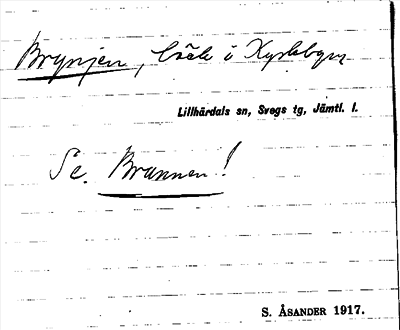 Brynjen, bäck i Kyrkbyn
Lillhärdals sn, Svegs tg, Jämtl. l.
Se. Brunnen!
S. ÅSANDER 1917.